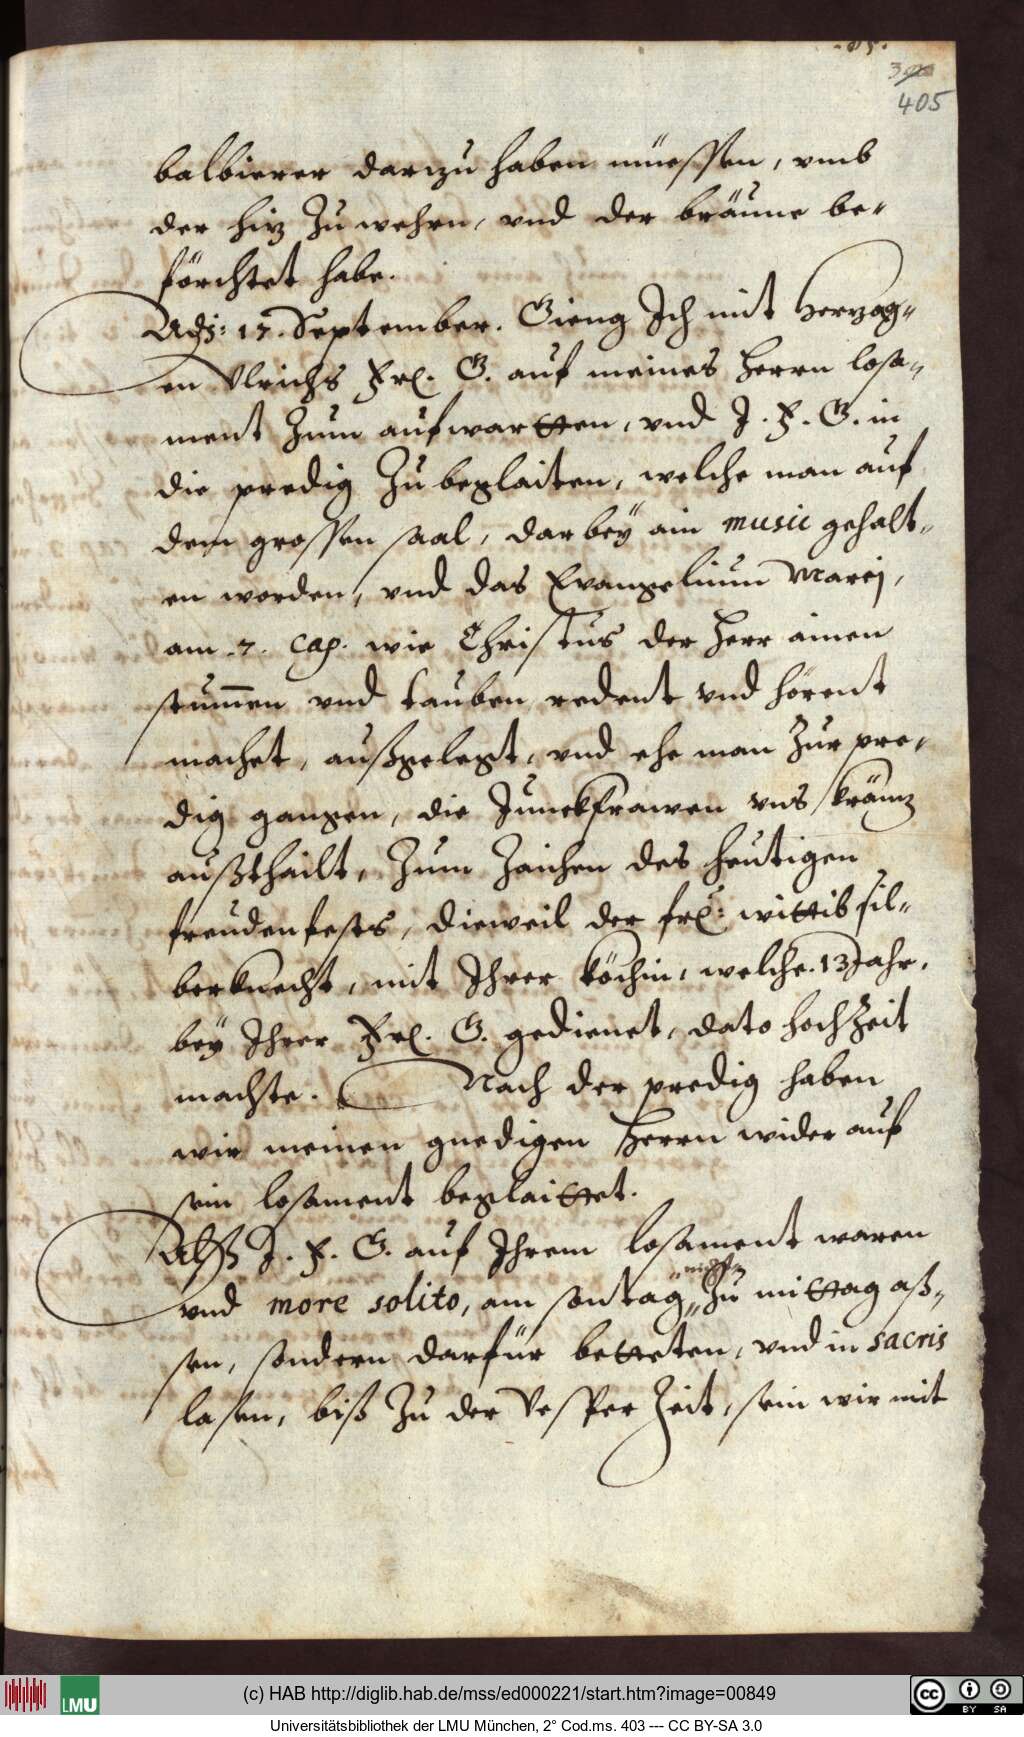 405
balbierer darzu haben müessen, vmb
der hiz Zu wehrn, vnd der bräune be-
förchtet habe.
Adj: 17. September. Gieng Ich mit Herzog-
en Vlrichs Frl. G. auf meines Herrn losa-
ment Zum aufwartten, vnd J. F. G. in
die predig Zu beglaiten, welche man auf
dem grossen saal, darbeÿ ain music gehalt-
en worden, vnd das Evangelium Marcj,
am .7. cap. wie Christus der Herr ainen
stum̄en vnd tauben redent vnd hörent
machet, außgelegt, vnd ehe man Zur pre-
dig gangen, die Junckfrawen vns kräntz
außthailt, Zum Zaichen des heutigen
freudenfests, dieweil der frl: wittib sil-
berknecht, mit Ihrer köchin, welche .13 Jahr.
beÿ Ihrer Frl. G. gedienet, dato hochZeit
machte. Nach der predig haben
wir meinen gnedigen Herrn wider auf
sein losament beglaittet.
Alß J. F. G. auf Ihrem losament waren
vnd more solito, am sontag nicht Zu mittag aß-
sen, sondern darfür betteten, vnd in sacris
lasen, biß Zu der Vesper Zeit, sein wir mit
(c) HAB http://diglib.hab.de/mss/ed000221/start.htm?image=00849
LMU
CC BY SA
Universitätsbibliothek der LMU München, 2° Cod.ms. 403 --- CC BY-SA 3.0